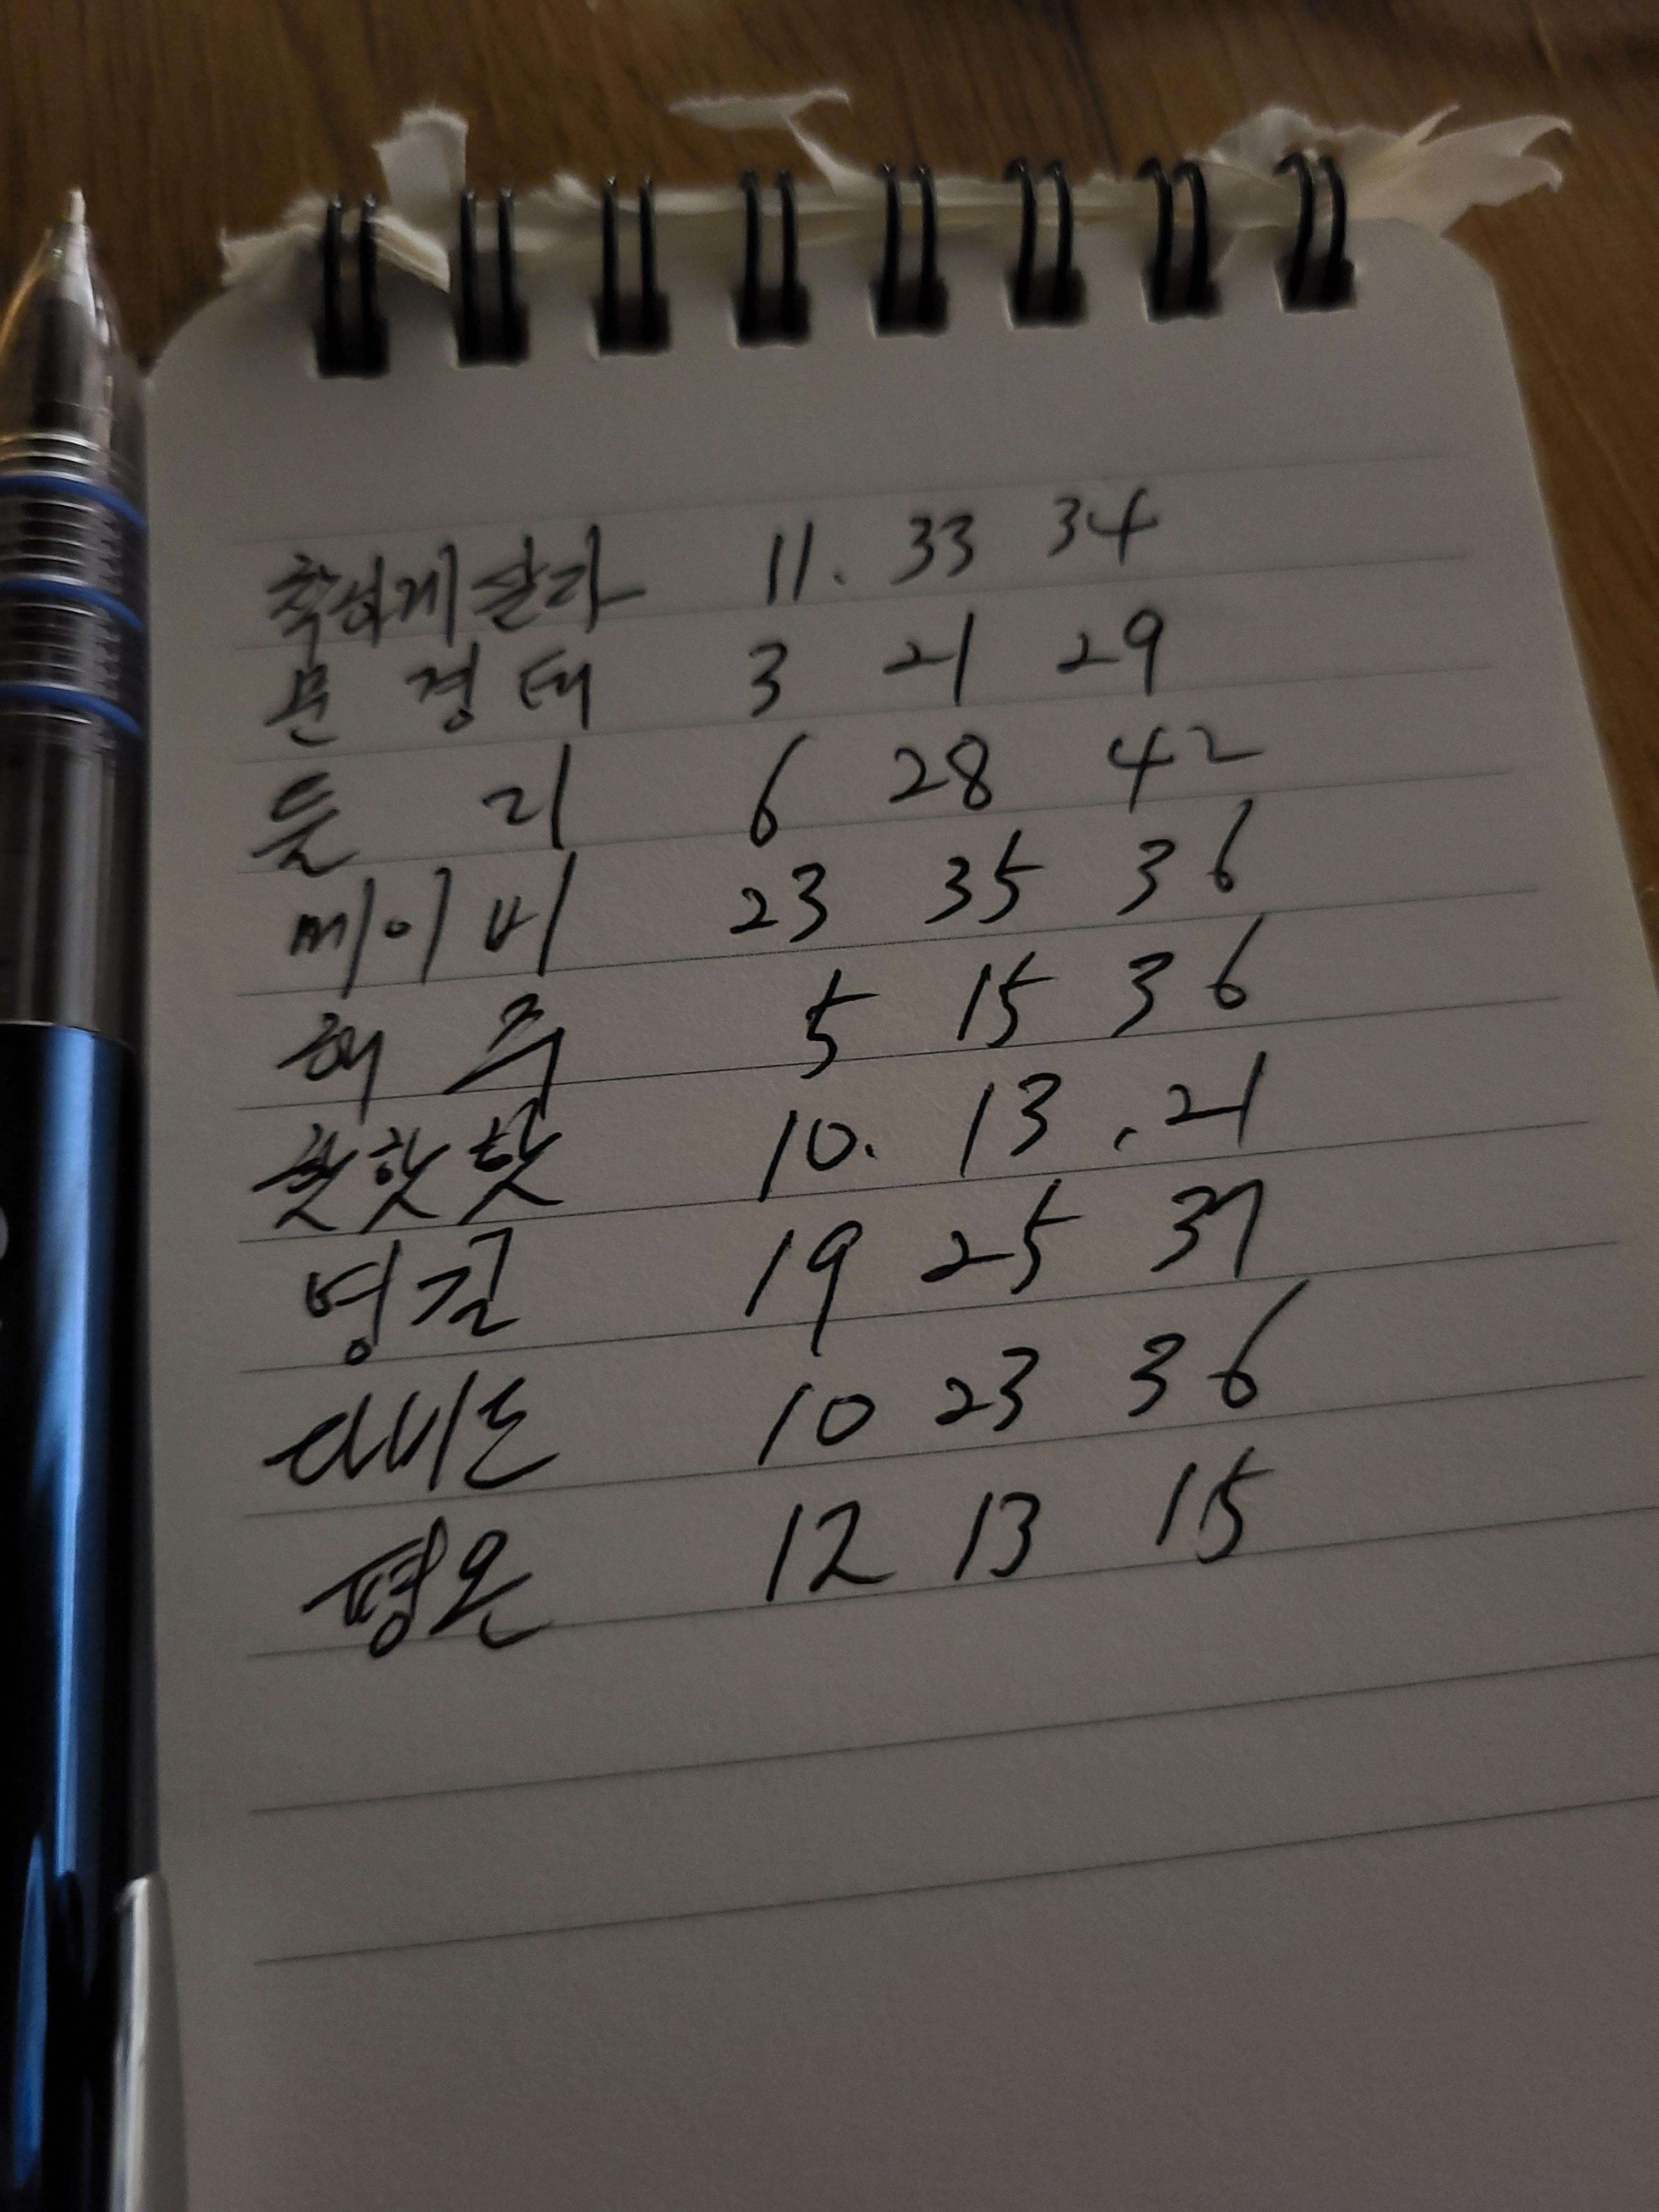 착하게살다 11. 33 34
문경태 3 21 29
둘리 6 28 42
메이비 23 35 36
해주 5 15 36
핫핫핫 10. 13 , 21
명길 19 25 37
다비드 10 23 36
평온 12 13 15